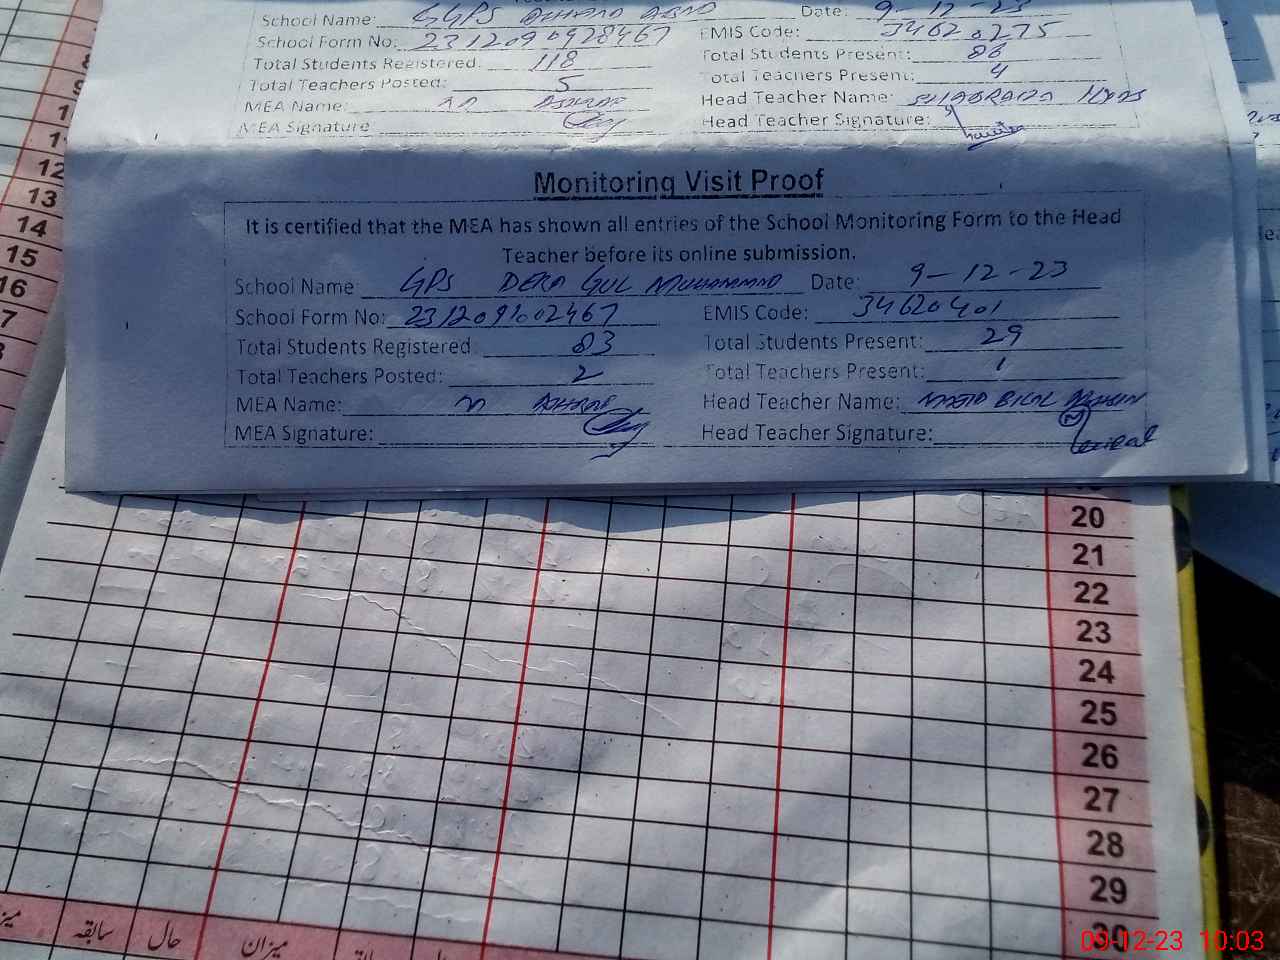 School Name: GGPS Date: 9-12-23
School Form No: 2312090928467 EMIS Code: 34620275
Total Students Registered: 118 Total Students Present: 86
Total Teachers Posted: 5 Total Teachers Present: 4
MEA Name: M Head Teacher Name:
MEA Signature Head Teacher Signature:
Monitoring Visit Proof
It is certified that the MEA has shown all entries of the School Monitoring Form to the Head
Teacher before its online submission.
School Name GPS DERA GUL MUHAMMAD Date: 9-12-23
School Form No: 2312091002467 EMIS Code: 34620401
Total Students Registered: 83 Total Students Present: 29
Total Teachers Posted: 2 Total Teachers Present: 1
MEA Name: M Head Teacher Name: MAJID BILAL
MEA Signature: Head Teacher Signature:
12
13
14
15
16
20
21
22
23
24
25
26
27
28
29
30
میزان حال سابقہ
09-12-23 10:03